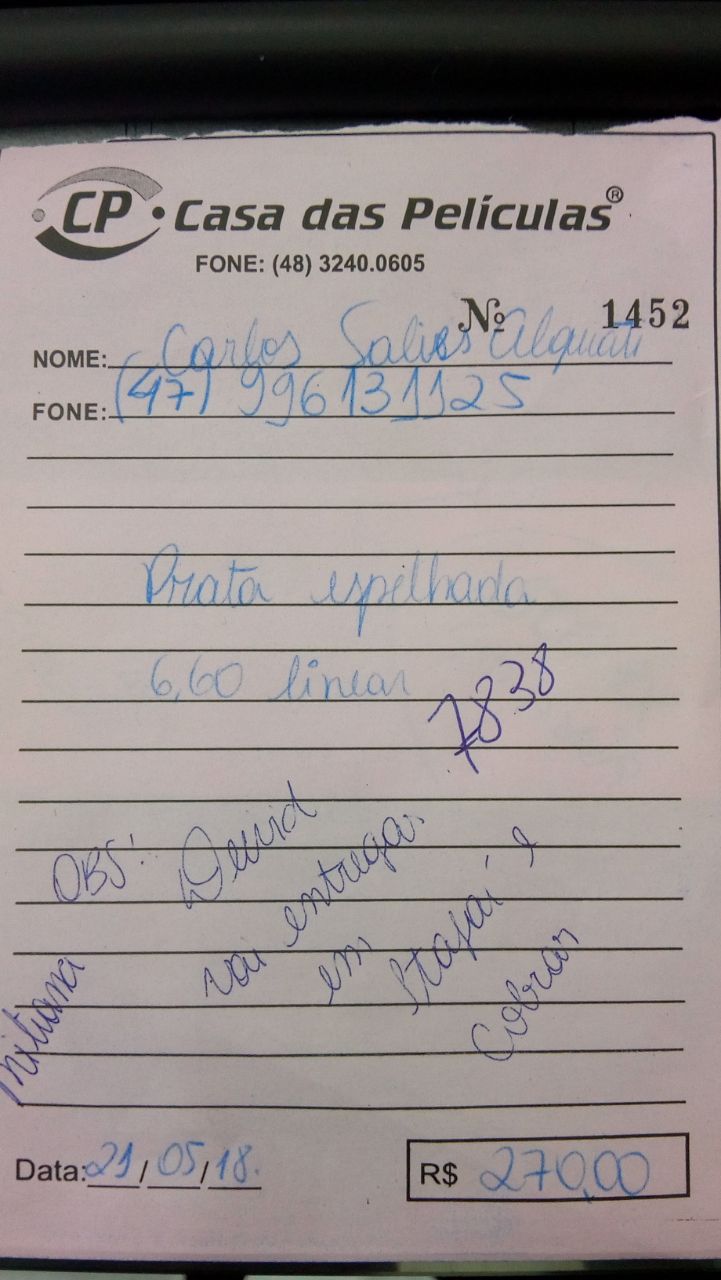 CP • Casa das Películas®
FONE: (48) 3240.0605
Nº 1452
NOME: Carlos Alquati
FONE: (47) 996131125
Prata espelhada
6,60 linear
7838
OBS: Deivid
vai entregar
em Itajaí e
Cobrar
Data: 21/05/18.
R$ 270,00